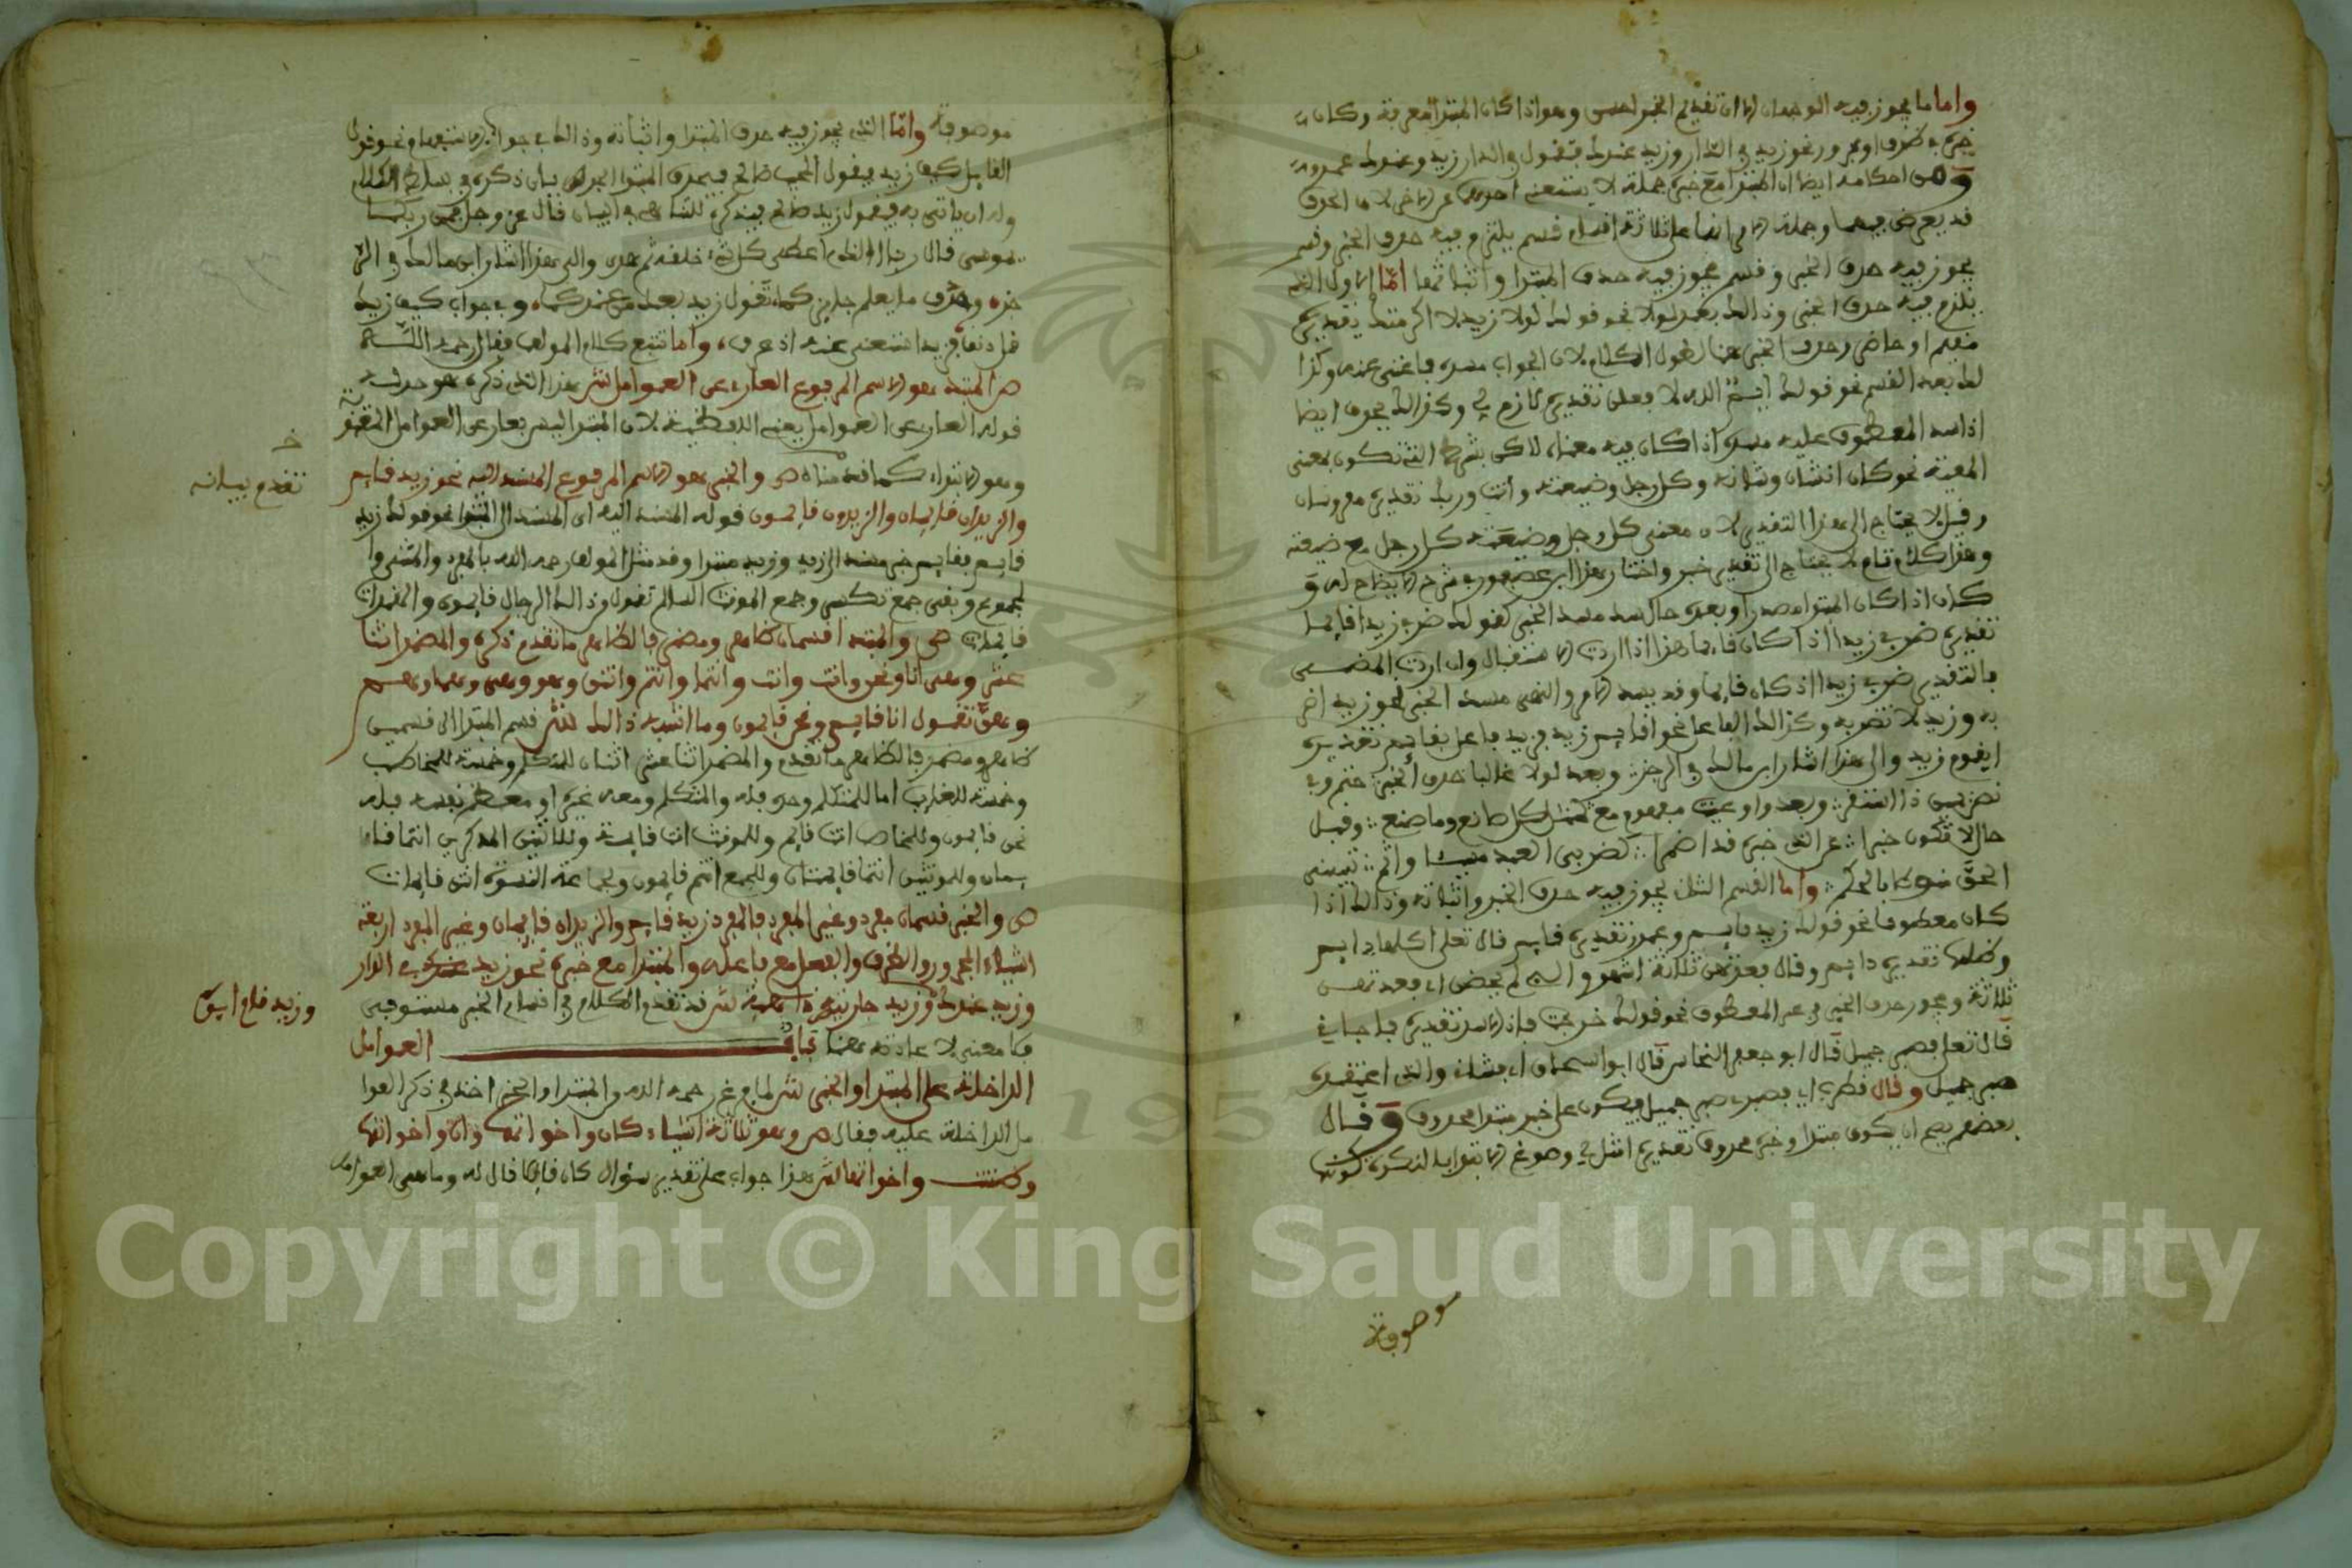 واما ما يجوز فيه الوجهان الا ان تقديم الخبر احسن وهو اذا كان المبتدا معرفة وكان
خبره ظرف او مجرور نحو زيد في الدار وزيد عندك فتقول في الدار زيد وعندك عمرو
ومن احكامه ايضا ان المبتدا مع خبره جملة لا يستغنى احدهما عن الاخر لان الحذف
قد يعرض فيهما وجملة الامر انها على ثلاثة اقسام قسم يلتزم فيه حذف الخبر وقسم
يجوز فيه حذف الخبر وقسم يجوز فيه حذف المبتدا واثباتهما اما الاول الذي
يلتزم فيه حذف الخبر وذالك بعد لولا نحو قولك لولا زيد لاكرمتك تقديره
مقيم او حاضر وحذف الخبر هنا لطول الكلام لان الجواب مسده فاغنى عنه وكذا
لك بعد القسم نحو قولك ايمن الله لا فعلن تقديره لازم لي وكذالك يحذف ايضا
اذا سد المعطوف عليه مسده اذا كان فيه معناه لاكن بشرط التي تكون بمعنى
المعية نحو كل انسان وشانه وكل رجل وضيعته وانت وربك تقديره مقرونان
وقيل لا يحتاج الى هذا التقدير لان معنى كل رجل وضيعته كل رجل مع ضيعته
وهذا كلام تام لا يحتاج الى تقدير خبر واختار هذا ابن عصفور في شرح الايضاح له و
كذلك اذا كان المبتدا مصدرا وبعده حال سد مسد الخبر كقولك ضربي زيدا قايما
تقديره ضربي زيدا اذا كان قايما هذا اذا اردت الاستقبال وان اردت المضي
فالتقدير ضربي زيدا اذ كان قايما وقد يسد الامر والنهي مسد الخبر نحو زيد اضر
به وزيد لا تضربه وكذالك الفاعل نحو اقايم زيد فزيد فاعل بقايم تقديره
ايقوم زيد والى هذا اشار ابن مالك في الرجز وبعد لولا غالبا حذف الخبر حتم وفي
نص يمين ذا استقر وبعد واو عينت مفهوم مع كمثل كل صانع وما صنع وقبل
حال لا تكون خبرا عن الذي خبره قد اضمرا كضربي العبد مسيئا واتم تبييني
الحق منوطا بالحكم واما القسم الثاني يجوز فيه حذف الخبر واثباته وذالك اذا
كان معطوفا نحو قولك زيد قايم وعمرو تقديره قايم قال تعلى اكلها دايم
وظلها تقديره دايم وقال فعدتهن ثلاثة اشهر واللاي لم يحضن اي فعدتهن
ثلاثة ويجوز حذف الخبر في غير المعطوف نحو قولك خرجت فاذا الاسد تقديره فاجاني
قال تعلى فصبر جميل قال ابو جعفر النحاس قال ابو اسحاق اي فشاني والذي اعتقده
صبر جميل وقال قطرب اي فصبري صبر جميل فيكون على خبر مبتدا محذوف وقال
بعضهم يصح ان يكون مبتدا وخبره محذوف تقديره امثل لي وسوغ الابتدا بالنكرة كونها
موصوفة
موصوفة واما الذي يجوز فيه حذف المبتدا واثباته وذالك في جواب الاستفهام نحو قول
القايل كيف زيد فيقول المجيب صالح فيحذف المبتدا لجري بيان ذكره في سياق الكلام
وله ان ياتي به فيقول زيد صالح فيذكره للتاكيد والبيان قال عز وجل فمن ربكما
يموسى قال ربنا الذي اعطى كل شيء خلقه ثم هدى والى هذا اشار ابن مالك في الر
جزه وحذف ما يعلم جايز كما تقول زيد بعد من عندكما وفي جواب كيف زيد
قل دنف فزيد استغني عنه اذ عرف واما تتبع كلام المولف فقال رحمه الله
ص المبتدا هو الاسم المرفوع العاري عن العوامل ش هذا الذي ذكره هو حده
قوله العاري عن العوامل يعني اللفظية لان المبتدا ليس بعار عن العوامل المعنوية
وهو الابتداء كما قدمناه ص والخبر هو الاسم المرفوع المسند اليه نحو زيد قايم
والزيدان قايمان والزيدون قايمون قوله المسند اليه اي المسند الى المبتدا نحو قولك زيد
قايم فقايم خبر مسند الى زيد وزيد مبتدا وقد مثل المولف رحمه الله بالمفرد والمثنى وا
لمجموع وبقي جمع تكسير وجمع المونث السالم تقول وذالك الرجال قايمون والهندات
قايمات ص والمبتدا قسمان ظاهر ومضمر فالظاهر ما تقدم ذكره والمضمر اثنا
عشر وهي انا ونحن وانت وانت وانتما وانتم وانتن وهو وهي وهما وهم
وهن تقول انا قايم ونحن قايمون وما اشبه ذالك ش قسم المبتدا الى قسمين
ظاهر ومضمر فالظاهر ما تقدم والمضمر اثنا عشر اثنان للمتكلم وخمسة للمخاطب
وخمسة للغايب اما للمتكلم وحده فله والمتكلم ومعه غيره او معظم نفسه فله
نحن قايمون وللمخاطب انت قايم وللمونث انت قايمة وللاثنين المذكرين انتما قا
يمان وللمونثين انتما قايمتان وللجمع انتم قايمون ولجماعة النسوة انتن قايمات
ص والخبر قسمان مفرد وغير المفرد فالمفرد زيد قايم والزيدان قايمان وغير المفرد اربعة
اشياء المجرور والظرف والفعل مع فاعله والمبتدا مع خبره نحو زيد في الدار
وزيد عندك وزيد جاريته ذاهبة ش قد تقدم الكلام في اقسام الخبر مستوفى
فلا معنى لاعادته هنا باب العوامل
الداخلة على المبتدا والخبر ش لما فرغ رحمه الله من المبتدا والخبر اخذ في ذكر العوا
مل الداخلة عليه فقال ص وهو ثلاثة اشياء كان واخواتها وان واخواتها
وظننت واخواتها ش هذا جواب على تقدير سؤال كان قايلا قال له وما هي العوامل
تقدم بيانه
وزيد قام ابوه
Copyright © King Saud University
1957